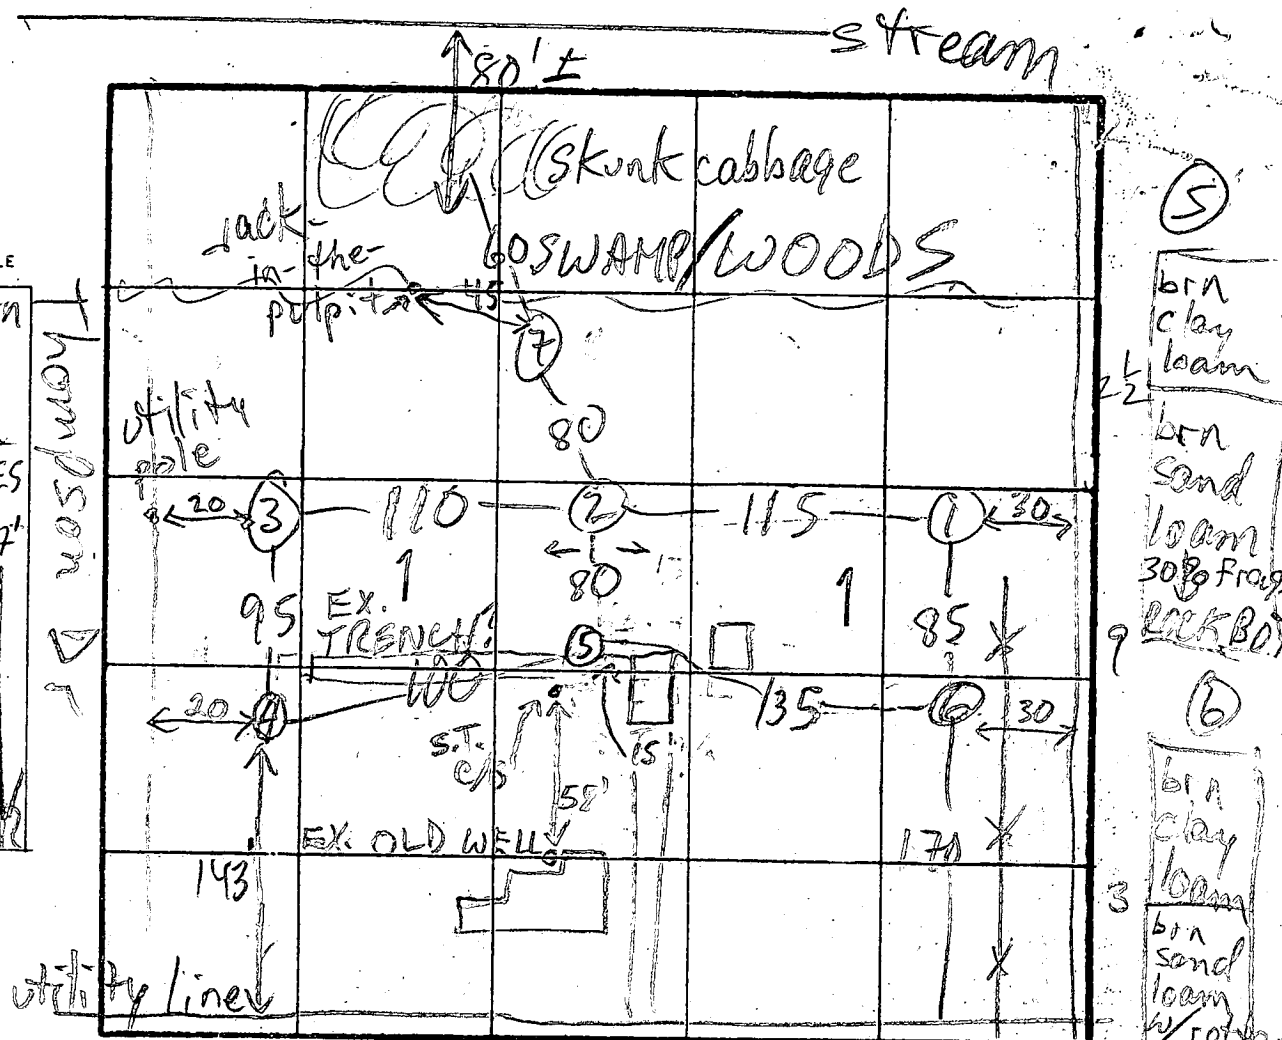 stream
80' ±
skunk cabbage
Jack-
in-the-
pulpit
60
SWAMP/WOODS
45
7
80
Thompson
utility
pole
20
3
110
2
115
1
30
80
1
1
95
EX.
TRENCH
5
85
100
135
20
4
6
30
S.T.
c/o
15'
58'
EX. OLD WELL
170
143
utility line
5
brn
clay
loam
2 1/2
brn
sand
loam
30%
9
6
brn
clay
loam
3
brn
sand
loam